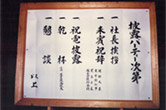 披露パーティー次第
一 社長挨拶
一 来賓祝辞
一 祝電披露
一 乾杯
一 懇談
以上